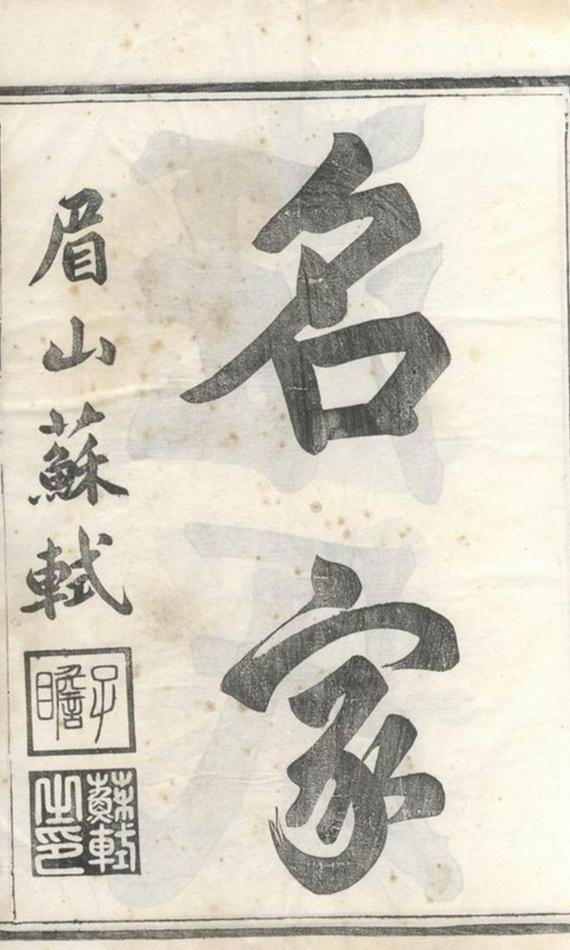 名家
眉山蘇軾
子瞻
蘇軾之印